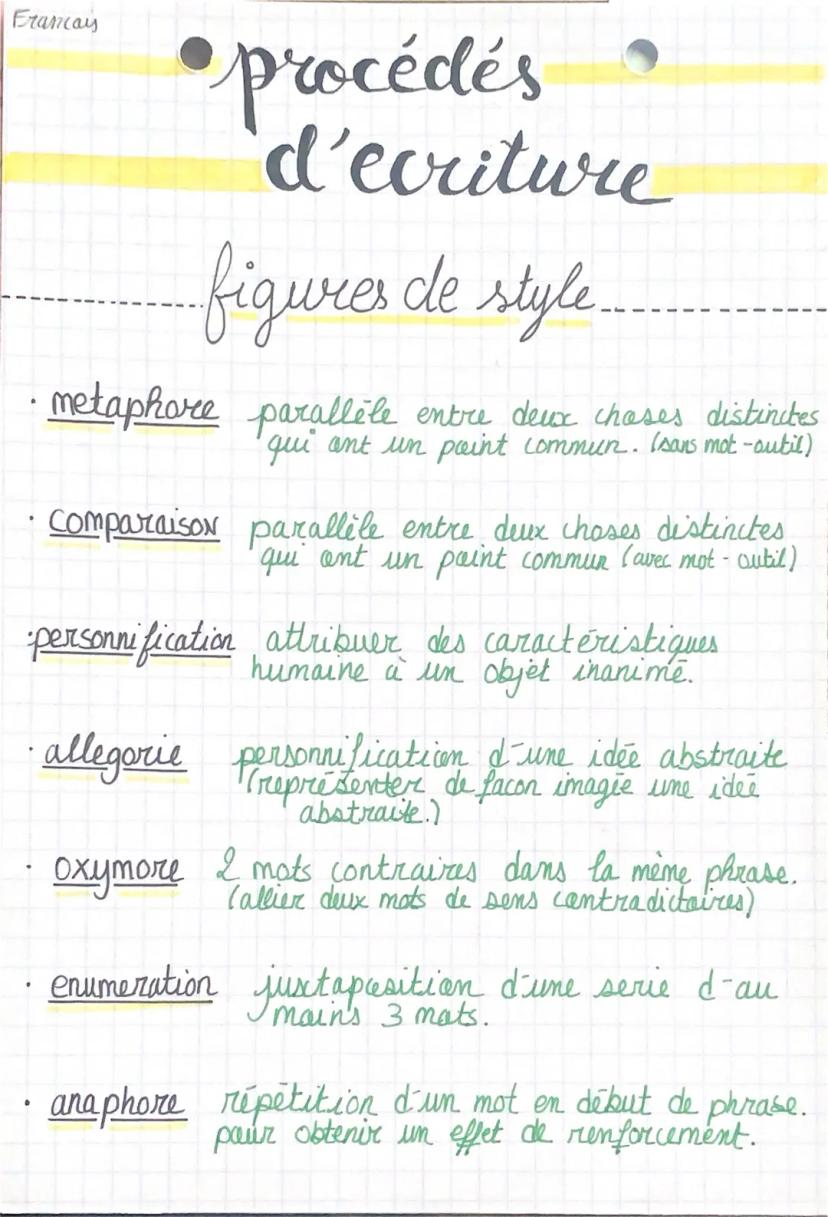 Francais
procédés
d'ecriture
figures de style
· metaphore parallèle entre deux choses distinctes
qui ont un point commun. (sans mot-outil)
· comparaison parallèle entre deux choses distinctes
qui ont un point commun (avec mot-outil)
· personnification attribuer des caractéristiques
humaine à un objet inanimé.
· allegorie personnification d'une idée abstraite
(représenter de façon imagée une idée
abstraite.)
· oxymore 2 mots contraires dans la même phrase.
(allier deux mots de sens contradictoires)
· enumeration juxtaposition d'une serie d'au
moins 3 mots.
· anaphore répétition d'un mot en début de phrase.
pour obtenir un effet de renforcement.